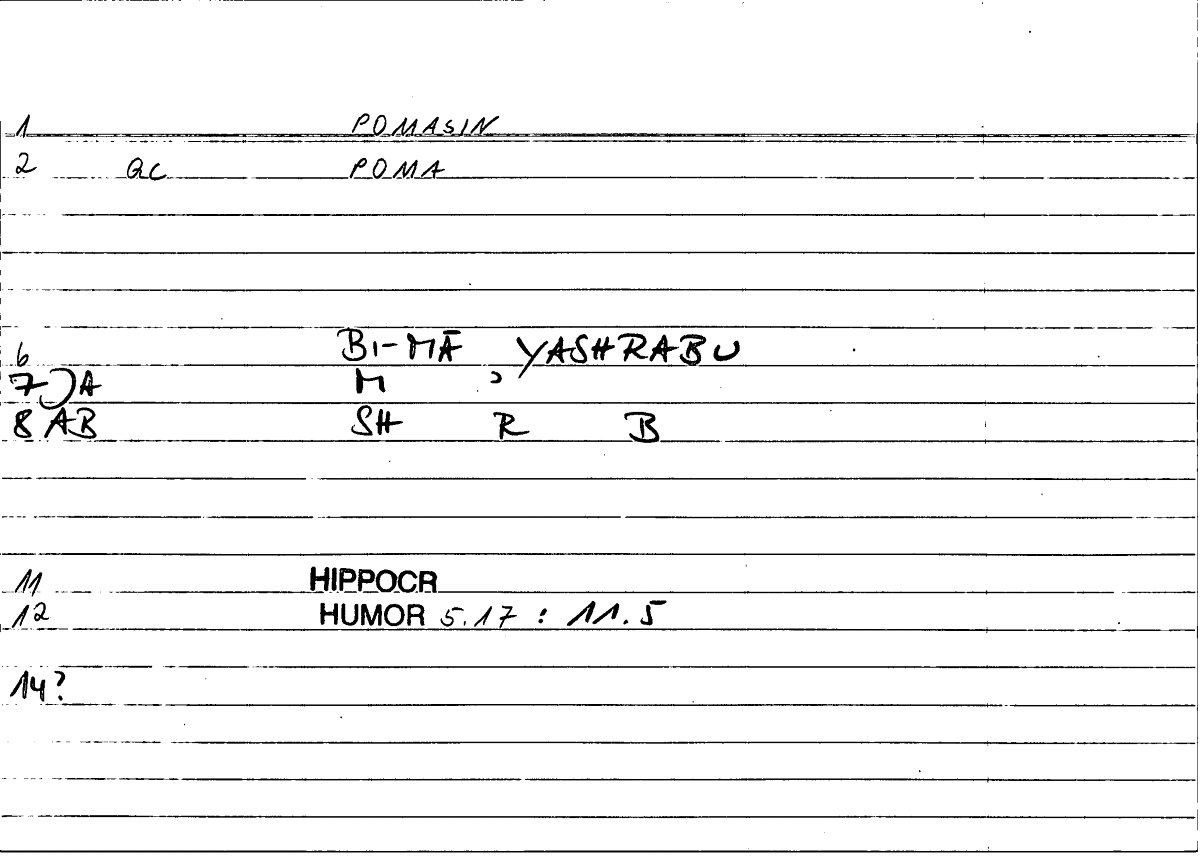 1 POMASIN
2 GC POMA
6 BI-MĀ YASHRABU
7 JA M ʾ
8 AB SH R B
11 HIPPOCR
12 HUMOR 5.17 : 11.5
14?